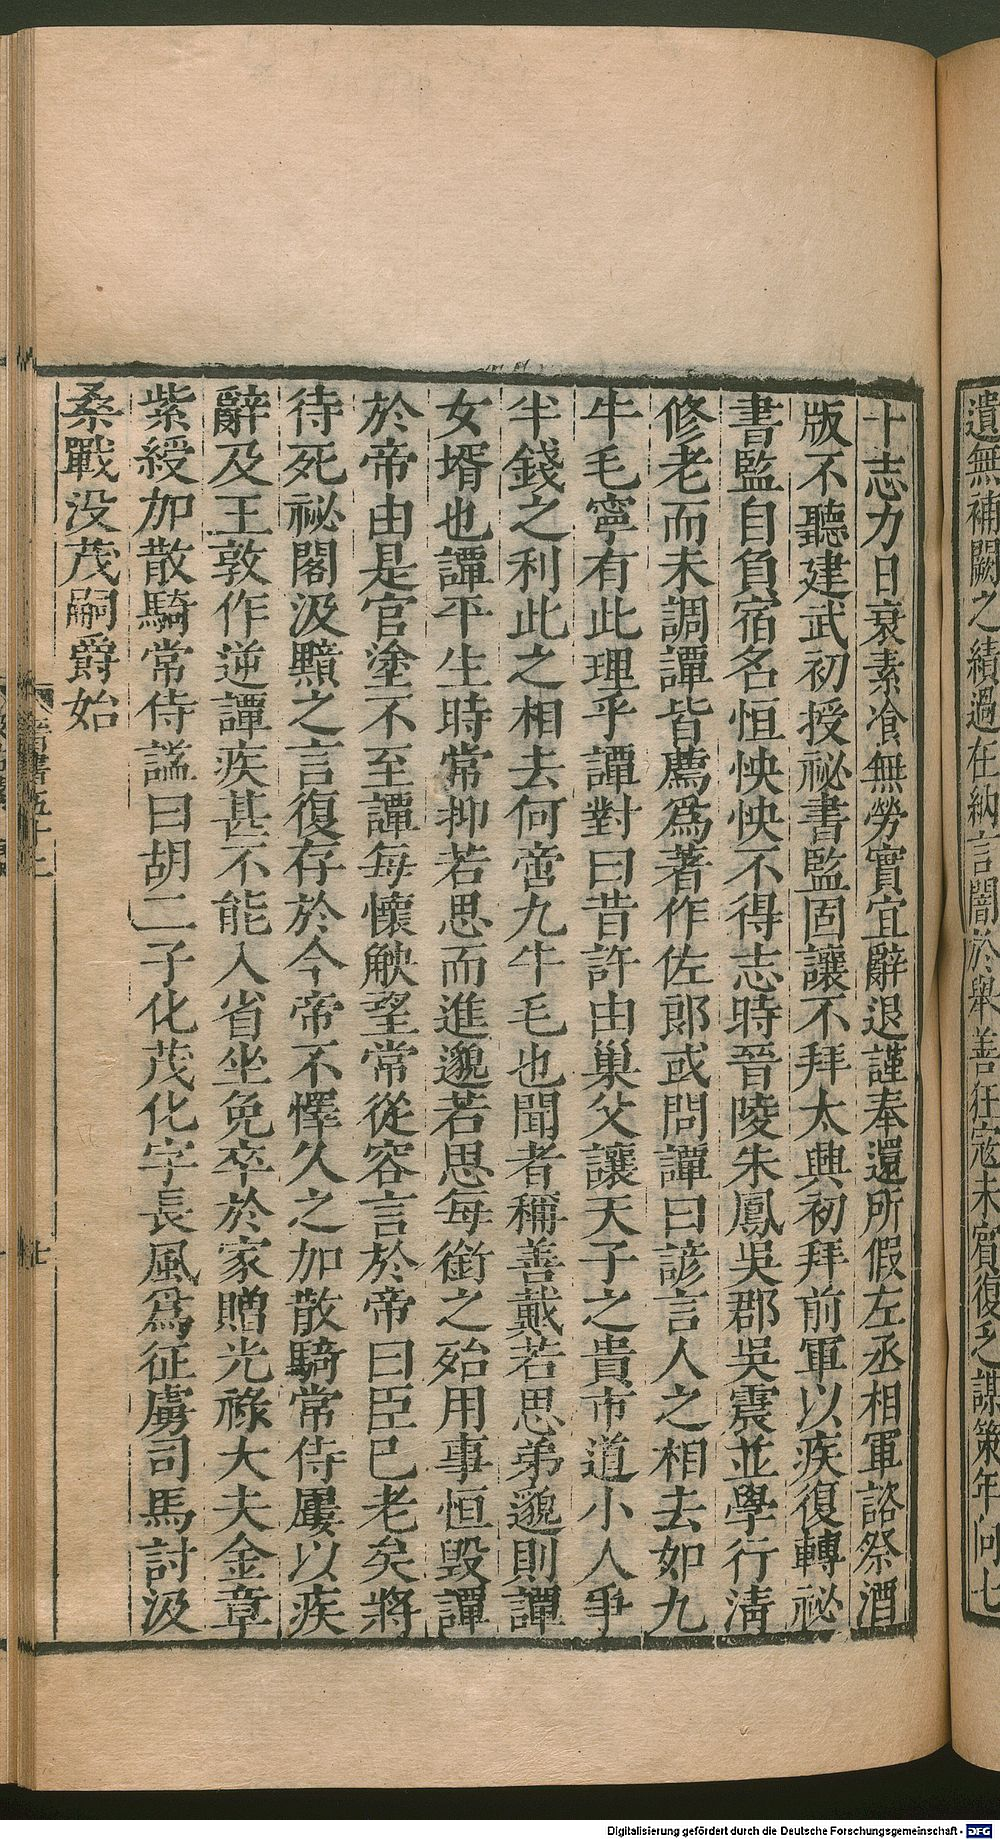 遺無補闕之績過在納言闇於舉善狂寇未賓復乏謀策年向七
十志力日衰素飡無勞實宜辭退謹奉還所假左丞相軍諮祭酒
版不聽建武初授祕書監固讓不拜太興初拜前軍以疾復轉祕
書監自負宿名恒怏怏不得志時晉陵朱鳳吳郡吳震並學行清
修老而未調譚皆薦爲著作佐郎或問譚曰諺言人之相去如九
牛毛寧有此理乎譚對曰昔許由巢父讓天子之貴市道小人爭
半錢之利此之相去何啻九牛毛也聞者稱善戴若思弟邈則譚
女壻也譚平生時常抑若思而進邈若思每銜之殆用事恒毀譚
於帝由是官塗不至譚每懷觖望常從容言於帝曰臣已老矣將
待死祕閣汲黯之言復存於今帝不懌久之加散騎常侍屢以疾
辭及王敦作逆譚疾甚不能入省坐免卒於家贈光祿大夫金章
紫綬加散騎常侍諡曰胡二子化茂化字長風爲征虜司馬討汲
桑戰没茂嗣爵始
七
Digitalisierung gefördert durch die Deutsche Forschungsgemeinschaft - DFG